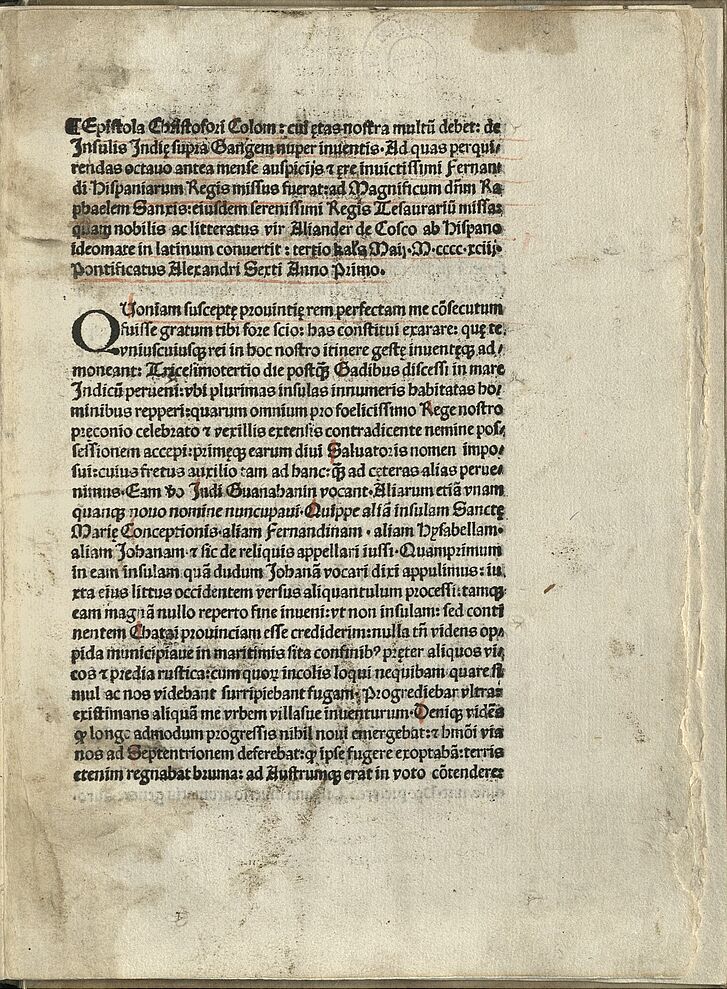 ¶Epistola Christofori Colom: cui ętas nostra multũ debet: de
Insulis Indię supra Gangem nuper inuentis. Ad quas perqui/
rendas octauo antea mense auspicijs ⁊ ęre inuictissimi Fernan
di Hispaniarum Regis missus fuerat: ad Magnificum dñm Ra
phaelem Sanxis: eiusdem serenissimi Regis Tesaurariũ missa:
quam nobilis ac litteratus vir Aliander de Cosco ab Hispano
ideomate in latinum conuertit: tertio kal's Maij. M.cccc.xciij.
Pontificatus Alexandri Sexti Anno Primo.
QUoniam susceptę prouintię rem perfectam me cõsecutum
fuisse gratum tibi fore scio: has constitui exarare: quę te
vniuscuiusq; rei in hoc nostro itinere gestę inuentęq; ad/
moneant: Tricesimotertio die postq̃ Gadibus discessi in mare
Indicũ perueni: vbi plurimas insulas innumeris habitatas ho/
minibus repperi: quarum omnium pro foelicissimo Rege nostro
pręconio celebrato ⁊ vexillis extensis contradicente nemine pos/
sessionem accepi: primęq; earum diui Saluatoris nomen impo/
sui: cuius fretus auxilio tam ad hanc: q̃ ad cęteras alias perue/
nimus. Eam vo Indi Guanahanin vocant. Aliarum etiã vnam
quanq; nouo nomine nuncupaui. Quippe aliã insulam Sanctę
Marię Conceptionis. aliam Fernandinam. aliam Hysabellam.
aliam Johanam. ⁊ sic de reliquis appellari iussi. Quamprimum
in eam insulam quã dudum Johanã vocari dixi appulimus: iu
xta eius littus occidentem versus aliquantulum processi: tamq;
eam magnã nullo reperto fine inueni: vt non insulam: sed conti
nentem Chatai prouinciam esse crediderim: nulla tñ videns op/
pida municipiaue in maritimis sita confinibꝰ pręter aliquos vi/
cos ⁊ predia rustica: cum quoꝝ incolis loqui nequibam. quare si
mul ac nos videbant surripiebant fugam. Progrediebar vltra:
existimans aliquã me vrbem villasue inuenturum. Deniq; vidẽs
ꝙ longe admodum progressis nihil noui emergebat: ⁊ hmõi via
nos ad Septentrionem deferebat: ꝙ ipse fugere exoptabã: terris
etenim regnabat bruma: ad Austrumq; erat in voto cõtendere: